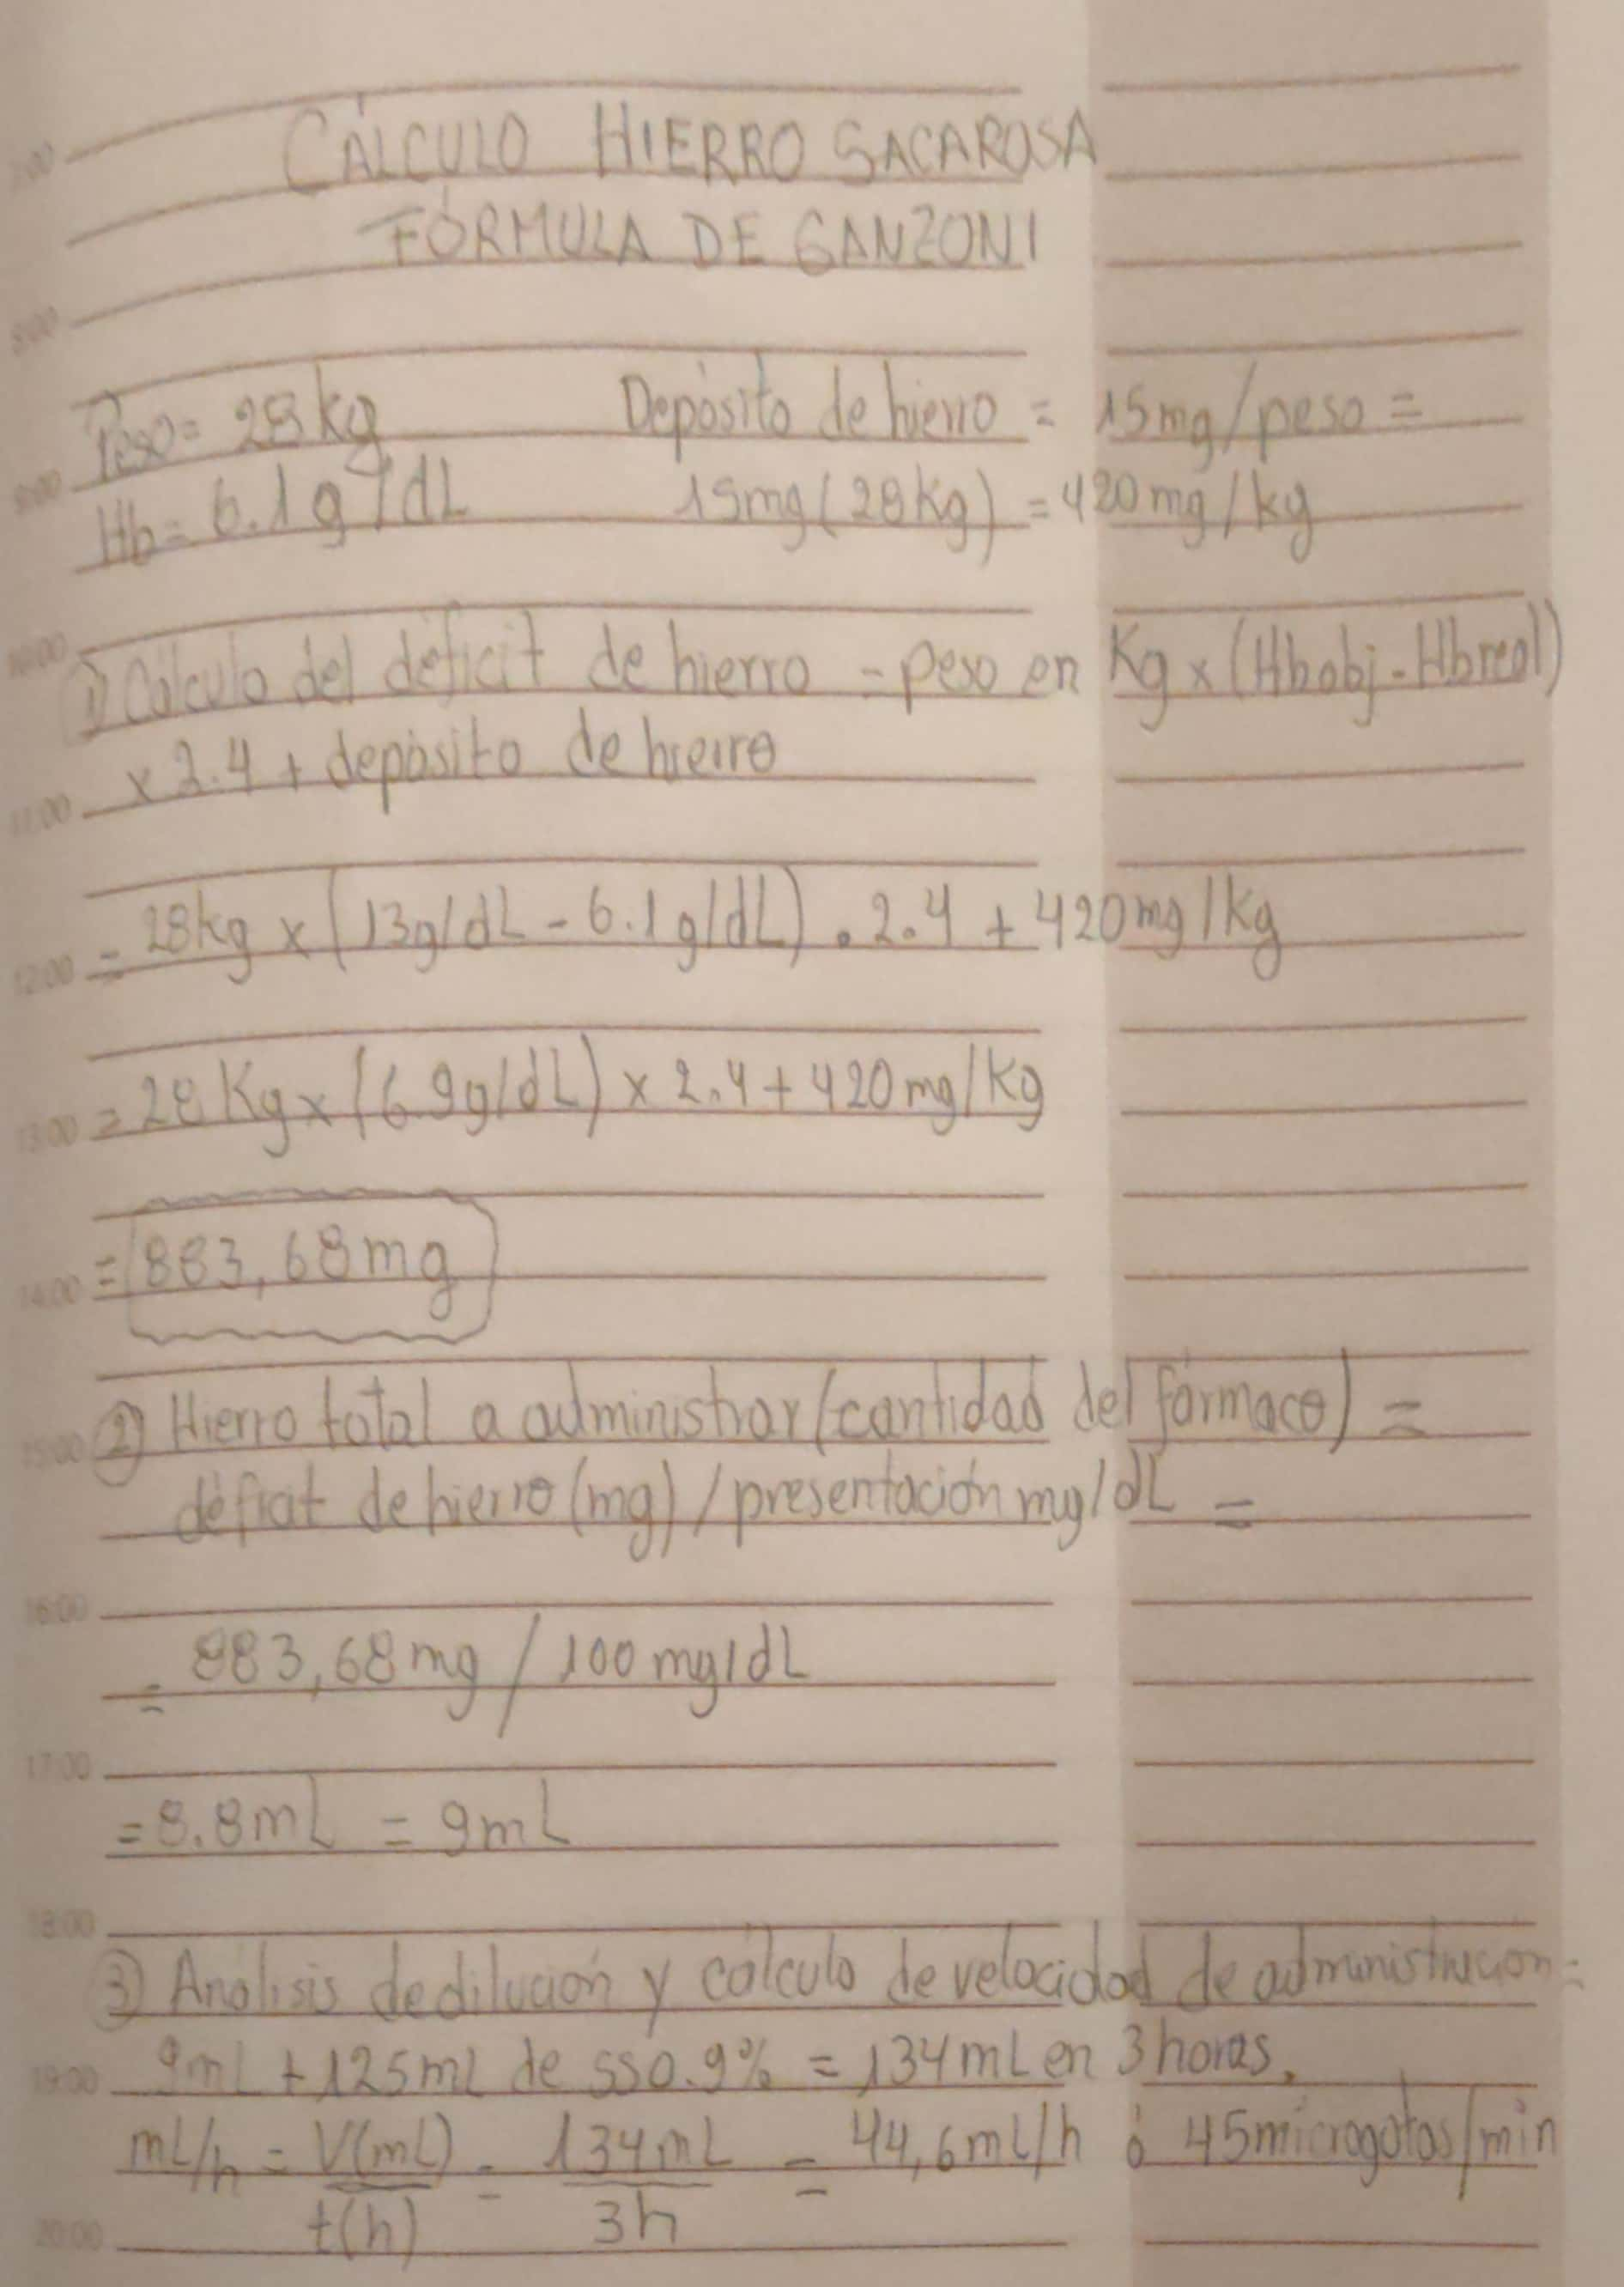 CÁLCULO HIERRO SACAROSA
FÓRMULA DE GANZONI
Peso = 28 kg Depósito de hierro = 15mg/peso =
Hb = 6.1 g/dL 15mg (28Kg) = 420 mg/kg
1) Cálculo del déficit de hierro = peso en Kg x (Hb obj - Hb real)
x 2.4 + depósito de hierro
= 28kg x (13g/dL - 6.1g/dL) . 2.4 + 420mg/Kg
= 28 Kg x (6.9g/dL) x 2.4 + 420 mg/Kg
= 883,68 mg
2) Hierro total a administrar (cantidad del fármaco) =
déficit de hierro (mg) / presentación mg/dL =
= 883,68 mg / 100 mg/dL
= 8.8 mL = 9 mL
3) Análisis de dilución y cálculo de velocidad de administración =
9mL + 125mL de SS 0.9% = 134 mL en 3 horas.
mL/h = V(mL) = 134 mL = 44,6 mL/h ó 45 microgotas/min
t(h) 3h
7:00
8:00
9:00
10:00
11:00
12:00
13:00
14:00
15:00
16:00
17:00
18:00
19:00
20:00